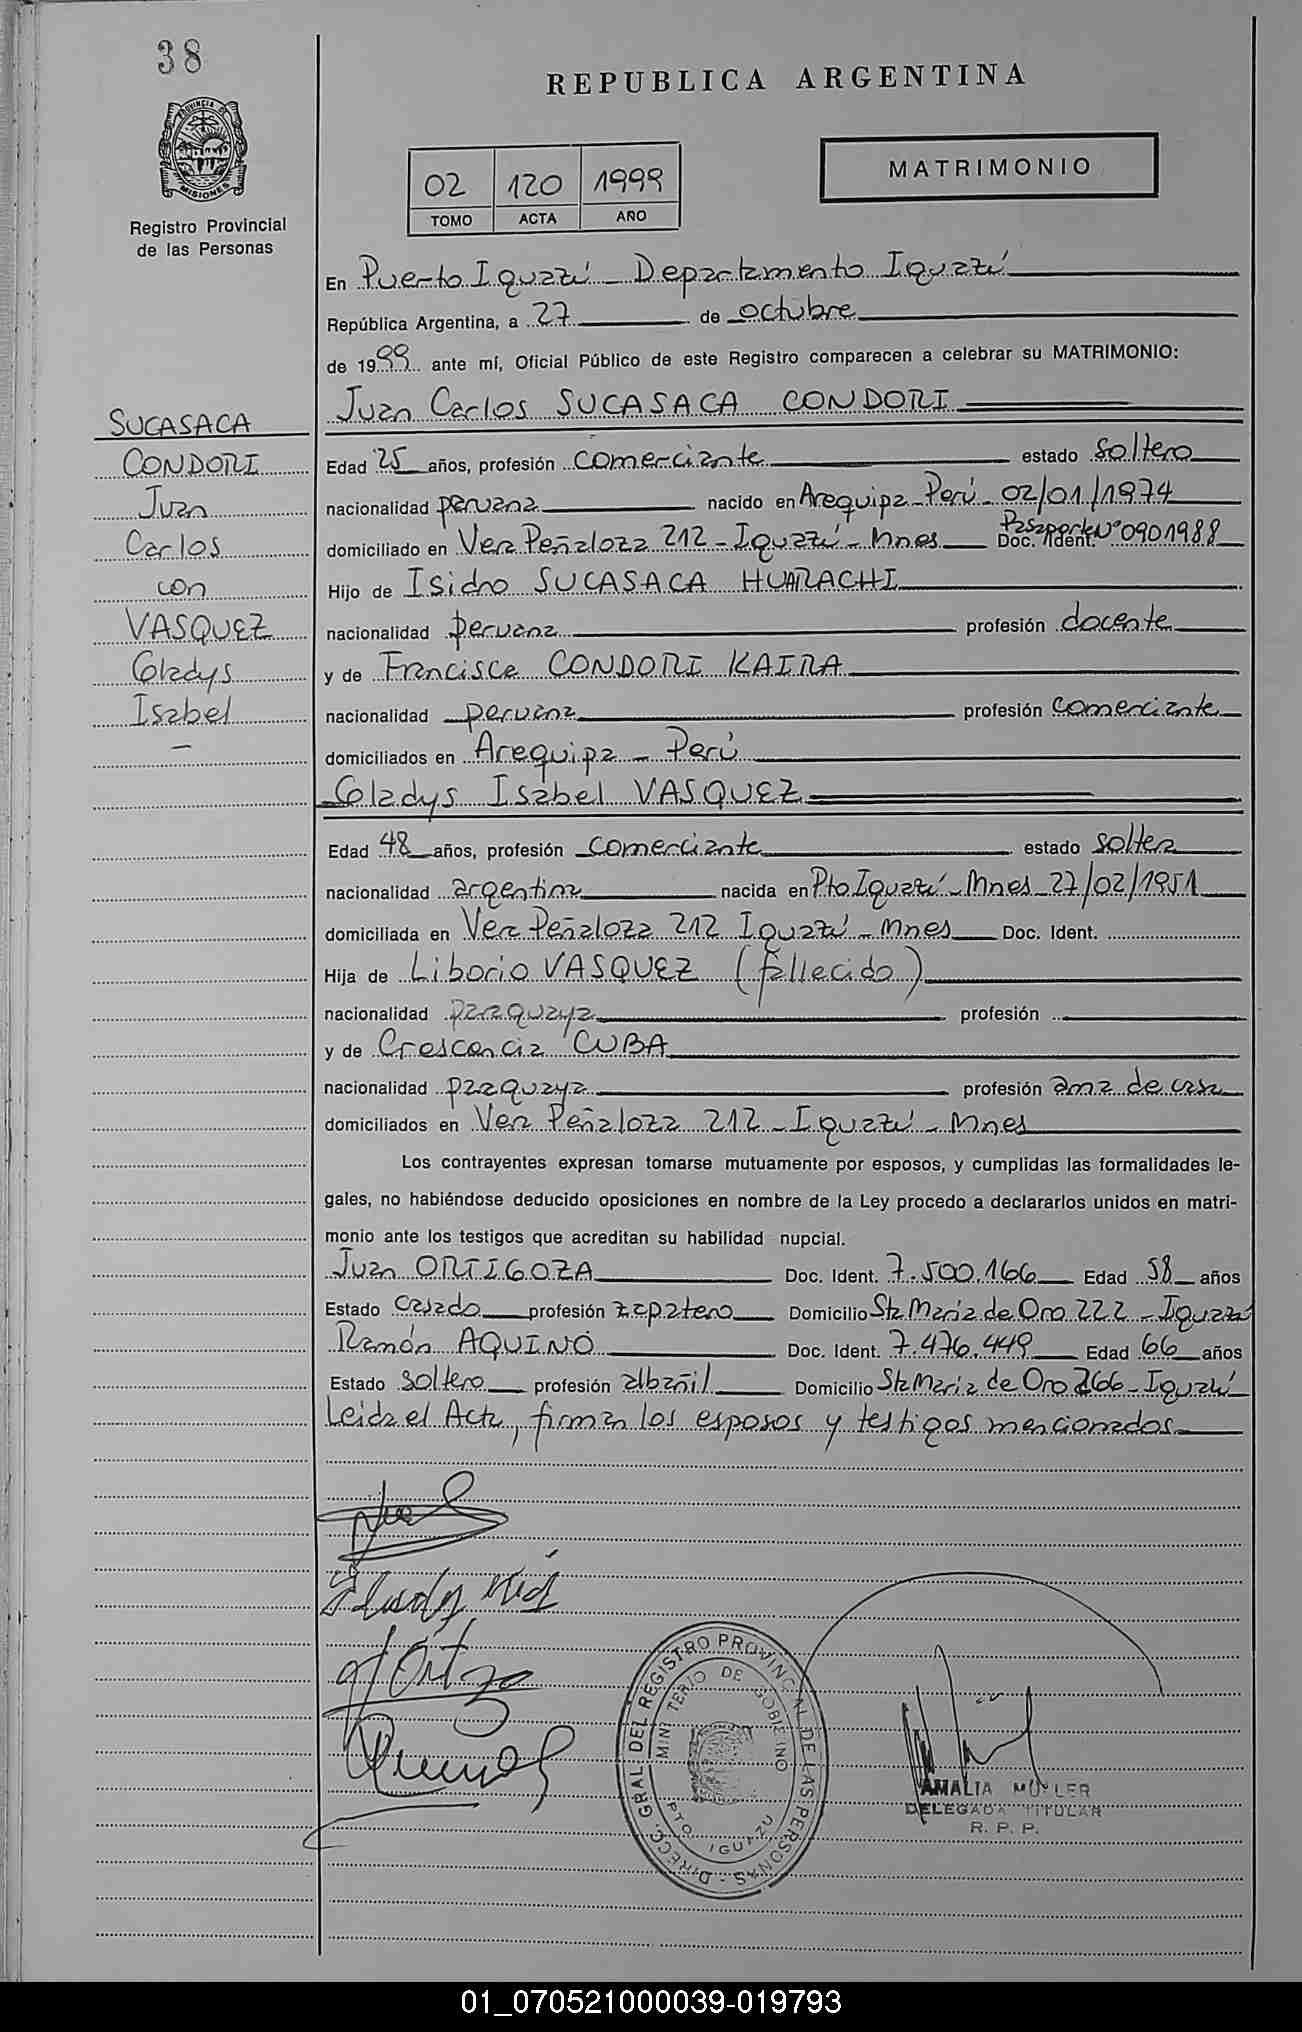 38
REPUBLICA ARGENTINA
PROVINCIA DE MISIONES
Registro Provincial
de las Personas
02 120 1999
TOMO ACTA AÑO
MATRIMONIO
En Puerto Iguazú - Departamento Iguazú
República Argentina, a 27 de octubre
de 1999 ante mí, Oficial Público de este Registro comparecen a celebrar su MATRIMONIO:
SUCASACA
CONDORI
Juan
Carlos
con
VASQUEZ
Gladys
Isabel
-
Juan Carlos SUCASACA CONDORI
Edad 25 años, profesión comerciante estado soltero
nacionalidad peruana nacido en Arequipa - Perú - 02/01/1974
domiciliado en Vera Peñaloza 212 - Iguazú - Mnes Doc. Ident. Pasaporte Nº 0901988
Hijo de Isidro SUCASACA HUARACHI
nacionalidad peruana profesión docente
y de Francisca CONDORI KAIRA
nacionalidad peruana profesión comerciante
domiciliados en Arequipa - Perú
Gladys Isabel VASQUEZ
Edad 48 años, profesión comerciante estado soltera
nacionalidad argentina nacida en Pto Iguazú - Mnes - 27/02/1951
domiciliada en Vera Peñaloza 212 Iguazú - Mnes Doc. Ident.
Hija de Liborio VASQUEZ (fallecido)
nacionalidad paraguaya profesión
y de Crescencia CUBA
nacionalidad paraguaya profesión ama de casa
domiciliados en Vera Peñaloza 212 - Iguazú - Mnes
Los contrayentes expresan tomarse mutuamente por esposos, y cumplidas las formalidades le-
gales, no habiéndose deducido oposiciones en nombre de la Ley procedo a declararlos unidos en matri-
monio ante los testigos que acreditan su habilidad nupcial.
Juan ORTIGOZA Doc. Ident. 7.500.166 Edad 58 años
Estado casado profesión zapatero Domicilio Sta María de Oro 222 - Iguazú
Ramón AQUINO Doc. Ident. 7.476.449 Edad 66 años
Estado soltero profesión albañil Domicilio Sta María de Oro 266 - Iguazú
Leida el Acta, firman los esposos y testigos mencionados
DIRECC. GRAL. DEL REGISTRO PROVINCIAL DE LAS PERSONAS
MINISTERIO DE GOBIERNO
PTO. IGUAZU
AMALIA MULLER
DELEGADA TITULAR
R. P. P.
01_070521000039-019793